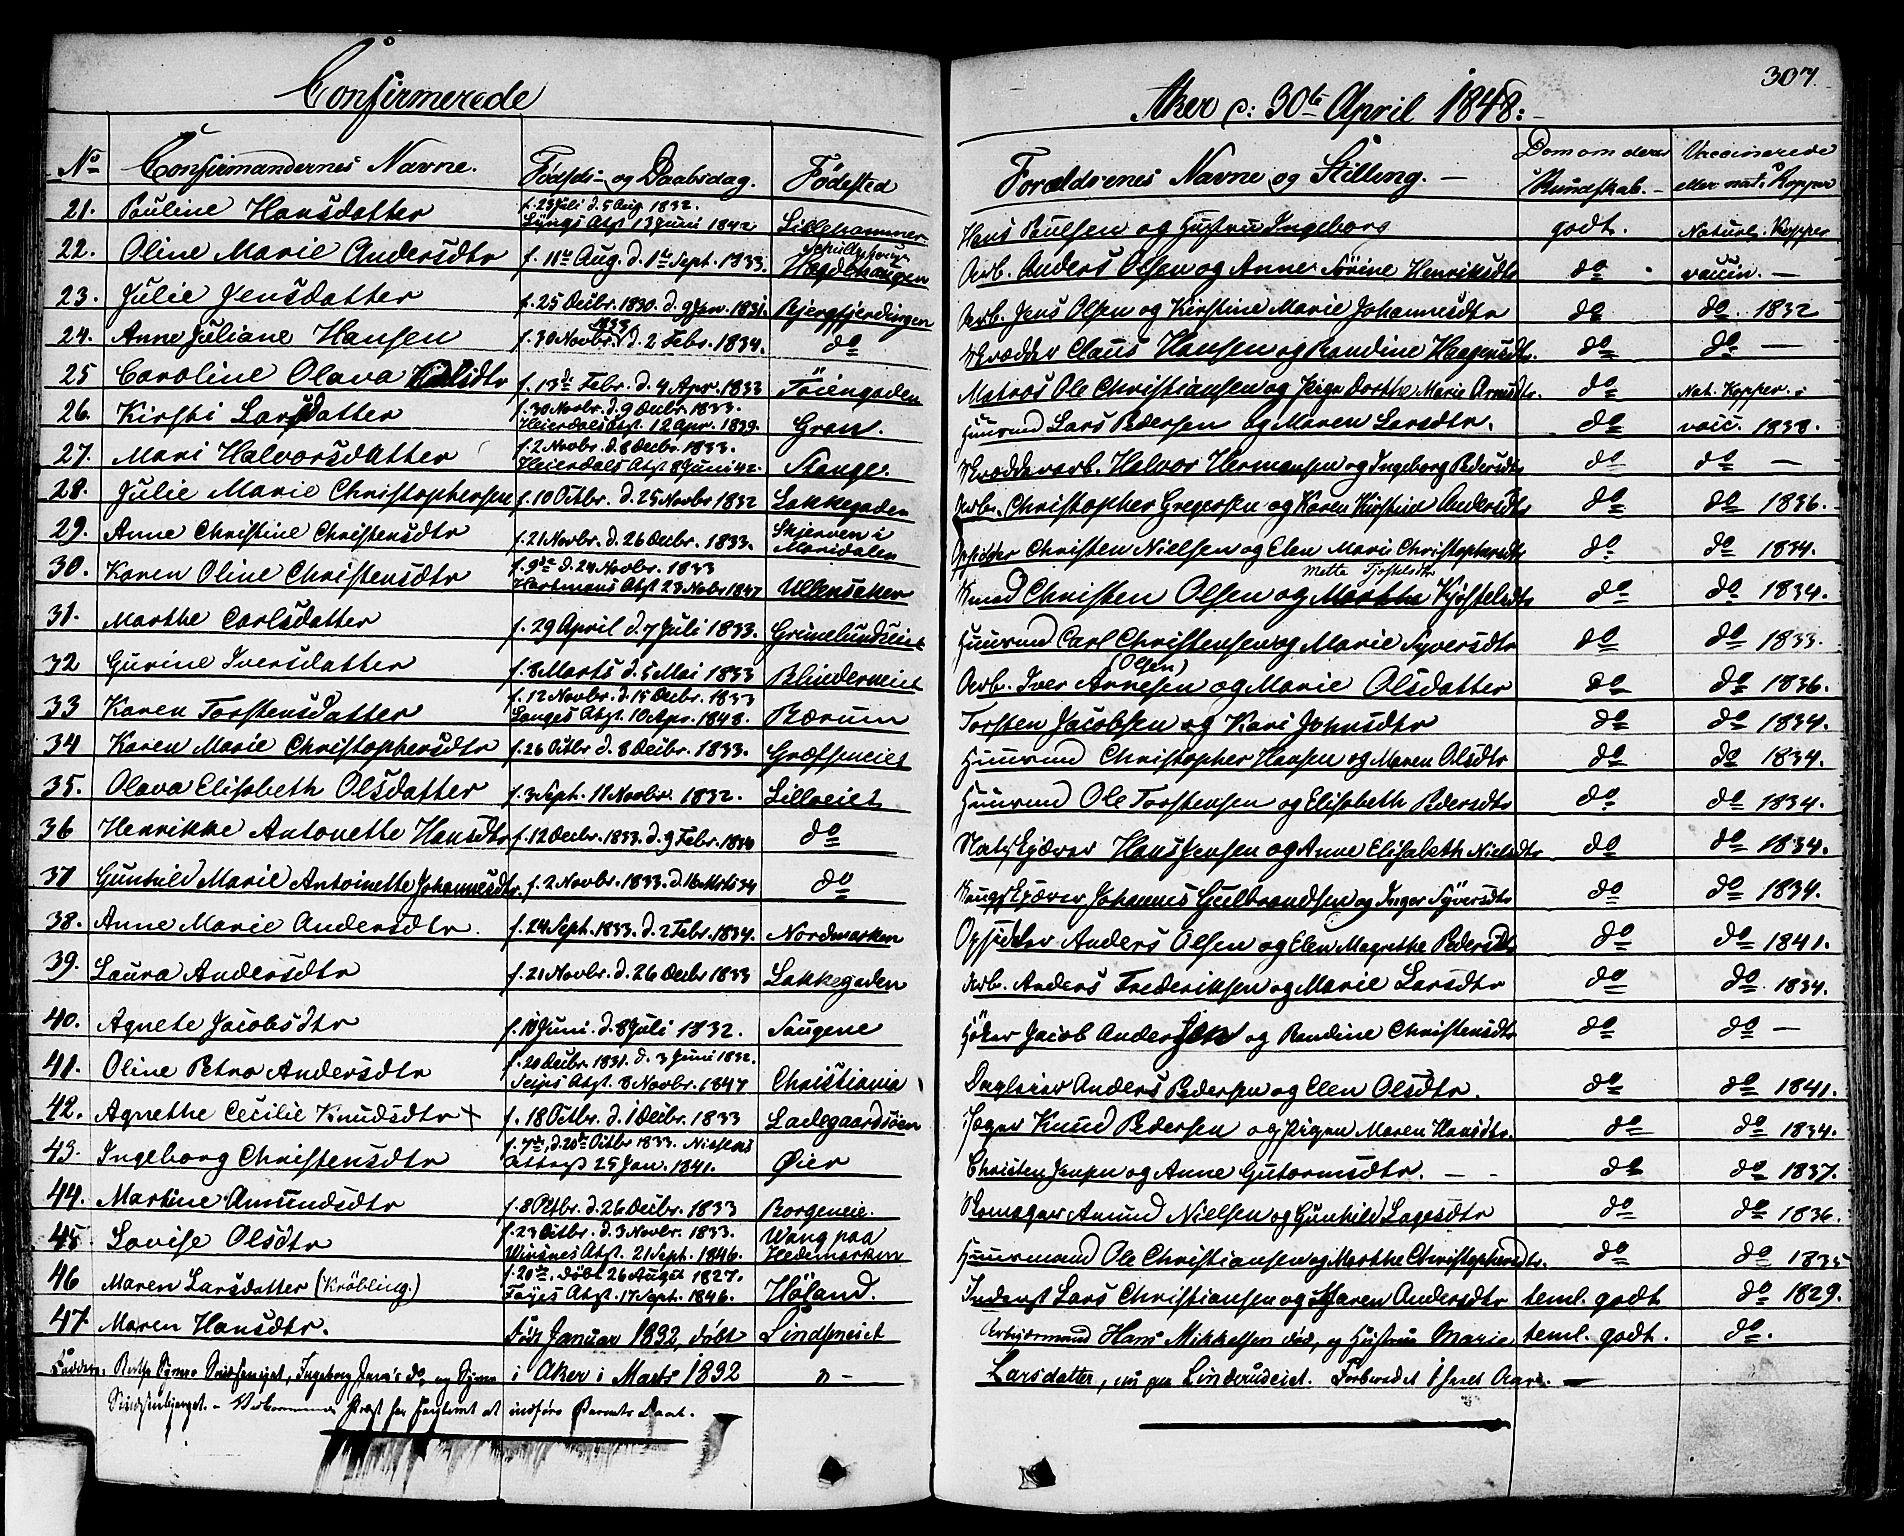 307.
Confirmerede
Aker d: 30te April 1848:
No Confirmandernes Navne. Fødsels- og Daabsdag. Fødested Forældrenes Navne og Stilling. — Dom om deres Kundskab. — Vaccinerede eller nat. Kopper
21. Pauline Hansdatter f. 23 Juli d. 5 Aug 1832. Lyngs Atst 13 Juni 1842 Lillehammer Hans Poulsen og Hustru Ingeborg godt. Naturl. Kopper
22. Oline Marie Andersdtr f. 11te Aug. d. 1te Sept. 1833. Hægdehaugen Arb. Anders Olsen og Anne Sørine Henriksdtr do vaccin. —
23. Julie Jensdatter f. 25 Decbr. 1830. d. 9 Jan. 1831. Bjergfjerdingen Arb. Jens Olsen og Kirstine Marie Johannesdtr do do. 1832
24. Anne Juliane Hansen f. 30 Novbr. 1833 d. 2 Febr. 1834. do Skrædder Claus Hansen og Randine Haagensdtr. do do —
25 Caroline Olava Olsdtr f. 13de Febr. d. 4 Apr. 1833 Töiengaden Matros Ole Christiansen og Pige Dorthe Marie Arnesdtr. do Nat. Kopper.
26. Kirsti Larsdatter f. 30 Novbr. d. 9 Decbr. 1833. Heierdals Atst 12 Apr. 1839. Gran. Huusmand Lars Pedersen og Maren Larsdtr. do vacc. 1838.
27. Mari Halvorsdatter f. 2 Novbr. d. 8 Decbr. 1833. Heierdals Atst 8 Juni 42. Stange. Skrædderarb. Halvor Hermansen og Ingeborg Pedersdtr do do —
28. Julie Marie Christophersen f. 10 Octbr. d. 25 Novbr 1832 Lakkegaden Arb. Christopher Gregersen og Karen Kirstine Andersdtr do do 1836.
29. Anne Christine Christensdtr f. 21 Novbr. d. 26 Decbr. 1833. Skjerven i Maridalen Opsidder Christen Nielsen og Elen Mari Christophersdtr do do 1834.
30. Karen Oline Christensdtr f. 9de d. 24 Novbr. 1833 Hartmans Atst 23 Nobr 1847 Ullensaker Kmd Christen Olsen og Marthe Kjostelsdtr Mette Tjostelsdtr do do 1834.
31. Marthe Carlsdatter f. 29 April d. 7 Juli 1833. Grimelundseiet Huusmd Carl Christensen og Marie Syversdtr do do 1833.
32 Gurine Iversdatter f. 8 Marts d. 5 Mai 1833 Blinderneiet Arb. Iver Arnesen (Olsen) og Marie Olsdatter do do 1836.
33 Karen Torstensdatter f. 12 Novbr. d. 15 Decbr. 1833 Langes Atst. 10 Apr. 1848. Bærum Torsten Jacobsen og Kari Johnsdtr do do 1834.
34 Karen Marie Christophersdtr f. 26 Octbr d. 8 Decbr. 1833. Græfseneiet Huusmd Christopher Hansen og Maren Olsdtr do do 1834.
35. Olava Elisabeth Olsdatter f. 3 Sept. 11 Novbr. 1832. Lilloeiet Huusmd Ole Torstensen og Elisabeth Pedersdtr do do 1834.
36 Henrikke Antonette Hansdtr f. 12 Decbr. 1833. d. 9 Febr. 1834 do Hans Jensen og Anne Elisabeth Nielsdtr do do 1834.
37 Gunhild Marie Antoinette Johannesdtr. f. 2 Novbr. 1833. d. 16 Mrts 34 do Johannes Gulbrandsen og Inger Syversdtr do do 1834.
38. Anne Marie Andersdtr. f. 24 Sept. 1833. d. 2 Febr. 1834. Nordmarken Opsidder Anders Olsen og Elen Magrethe Pedersdtr do do 1841.
39. Laura Andersdtr f. 21 Novbr. d. 26 Decbr 1833 Lakkegaden Arb. Anders Frederiksen og Marie Larsdtr do do 1834.
40. Agnete Jacobsdtr f. 10 Juni. d. 8 Juli 1832. Saugene Høker Jacob Andersen og Randine Christensdtr do do —
41. Oline Petra Andersdtr f. 20 Decbr. 1831. d. 3 Juni 1832. Seips Atst 8 Novbr. 1847 Christiania Dagleier Anders Pedersen og Elen Olsdtr. do do 1841.
42. Agnethe Cecilie Knudsdtr + f. 18 Octbr. d. 1 Decbr. 1833 Ladegaardsöen Jæger Knud Pedersen og Pigen Maren Hansdtr. do do 1834.
43. Ingeborg Christensdtr f. 7de, d. 20de Octbr 1833. Nielsens Attest 25 Jan. 1841. Øier Christen Jensen og Anne Gutormsdtr. — - do do 1837.
44. Martine Amundsdtr f. 8 Octbr. d. 26 Decbr. 1833 Borgeneie. Skomager Amund Nielsen og Gunhild Lagesdtr do do 1836.
45. Lovise Olsdtr f. 23 Octbr. d. 3 Novbr. 1833. Winsnes Atst. 21 Sept. 1846. Wang paa Hedemarken Huusmand Ole Christiansen og Marthe Christophersdtr. do do 1835
46 Maren Larsdatter (Krøbling.) f. 20de, døbt 26 August 1827. Fayes Atst. 17 Sept. 1846. Höland. Inderst Lars Christiansen og Maren Andersdtr teml. godt do 1829.
47. Maren Hansdtr. Før Januar 1832, døbt Lindsneiet Arbejdsmand Hans Mikkelsen død, og Hustru Marie teml. godt. do.
Faddere: Berthe i Aker i Marts 1832 „ - Larsdatter, nu paa Linderudeiet. Forberedet 1 Aar. —
Præst har indføre Barnets Daab.